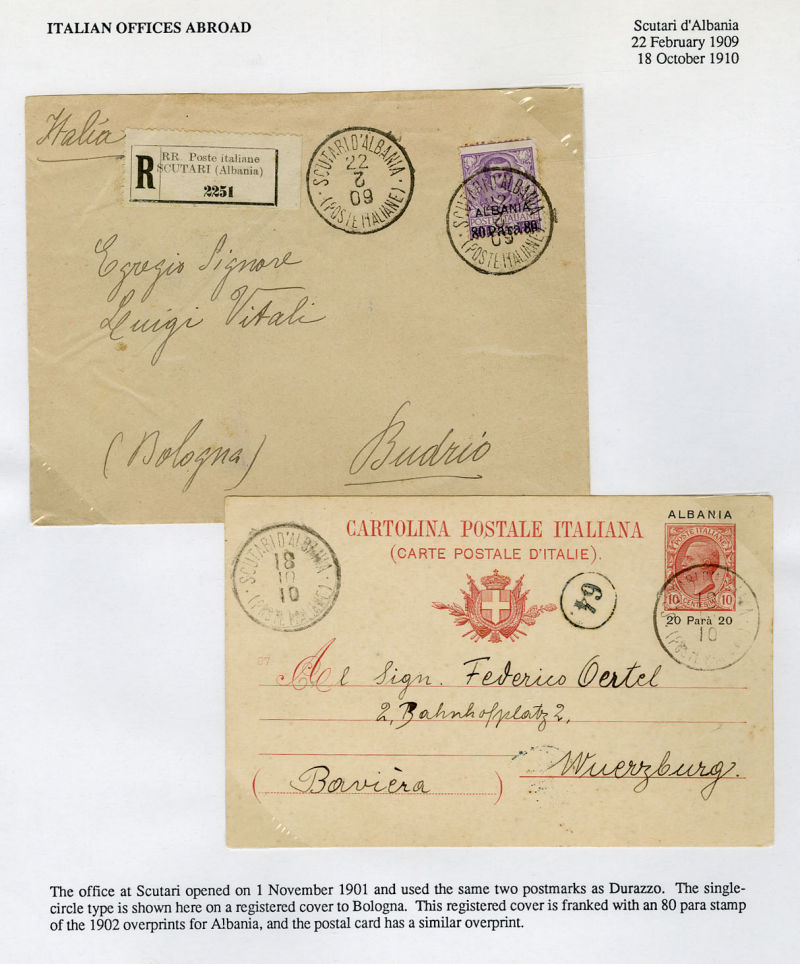 ITALIAN OFFICES ABROAD
Scutari d'Albania
22 February 1909
18 October 1910
Italia
R
RR. Poste italiane
SCUTARI (Albania)
2251
SCUTARI D'ALBANIA
22
2
09
(POSTE ITALIANE)
SCUTARI D'ALBANIA
22
09
(POSTE ITALIANE)
ALBANIA
80 Para 80
Egregio Signore
Luigi Vitali
(Bologna)
Budrio
CARTOLINA POSTALE ITALIANA
(CARTE POSTALE D'ITALIE).
ALBANIA
POSTE ITALIANE
10 CENTESIMI 10
20 Parà 20
SCUTARI D'ALBANIA
18
10
10
(POSTE ITALIANE)
10
64
07
Al Sign. Federico Oertel
2, Bahnhofplatz 2,
Wuerzburg.
(Bavièra)
The office at Scutari opened on 1 November 1901 and used the same two postmarks as Durazzo. The single-
circle type is shown here on a registered cover to Bologna. This registered cover is franked with an 80 para stamp
of the 1902 overprints for Albania, and the postal card has a similar overprint.